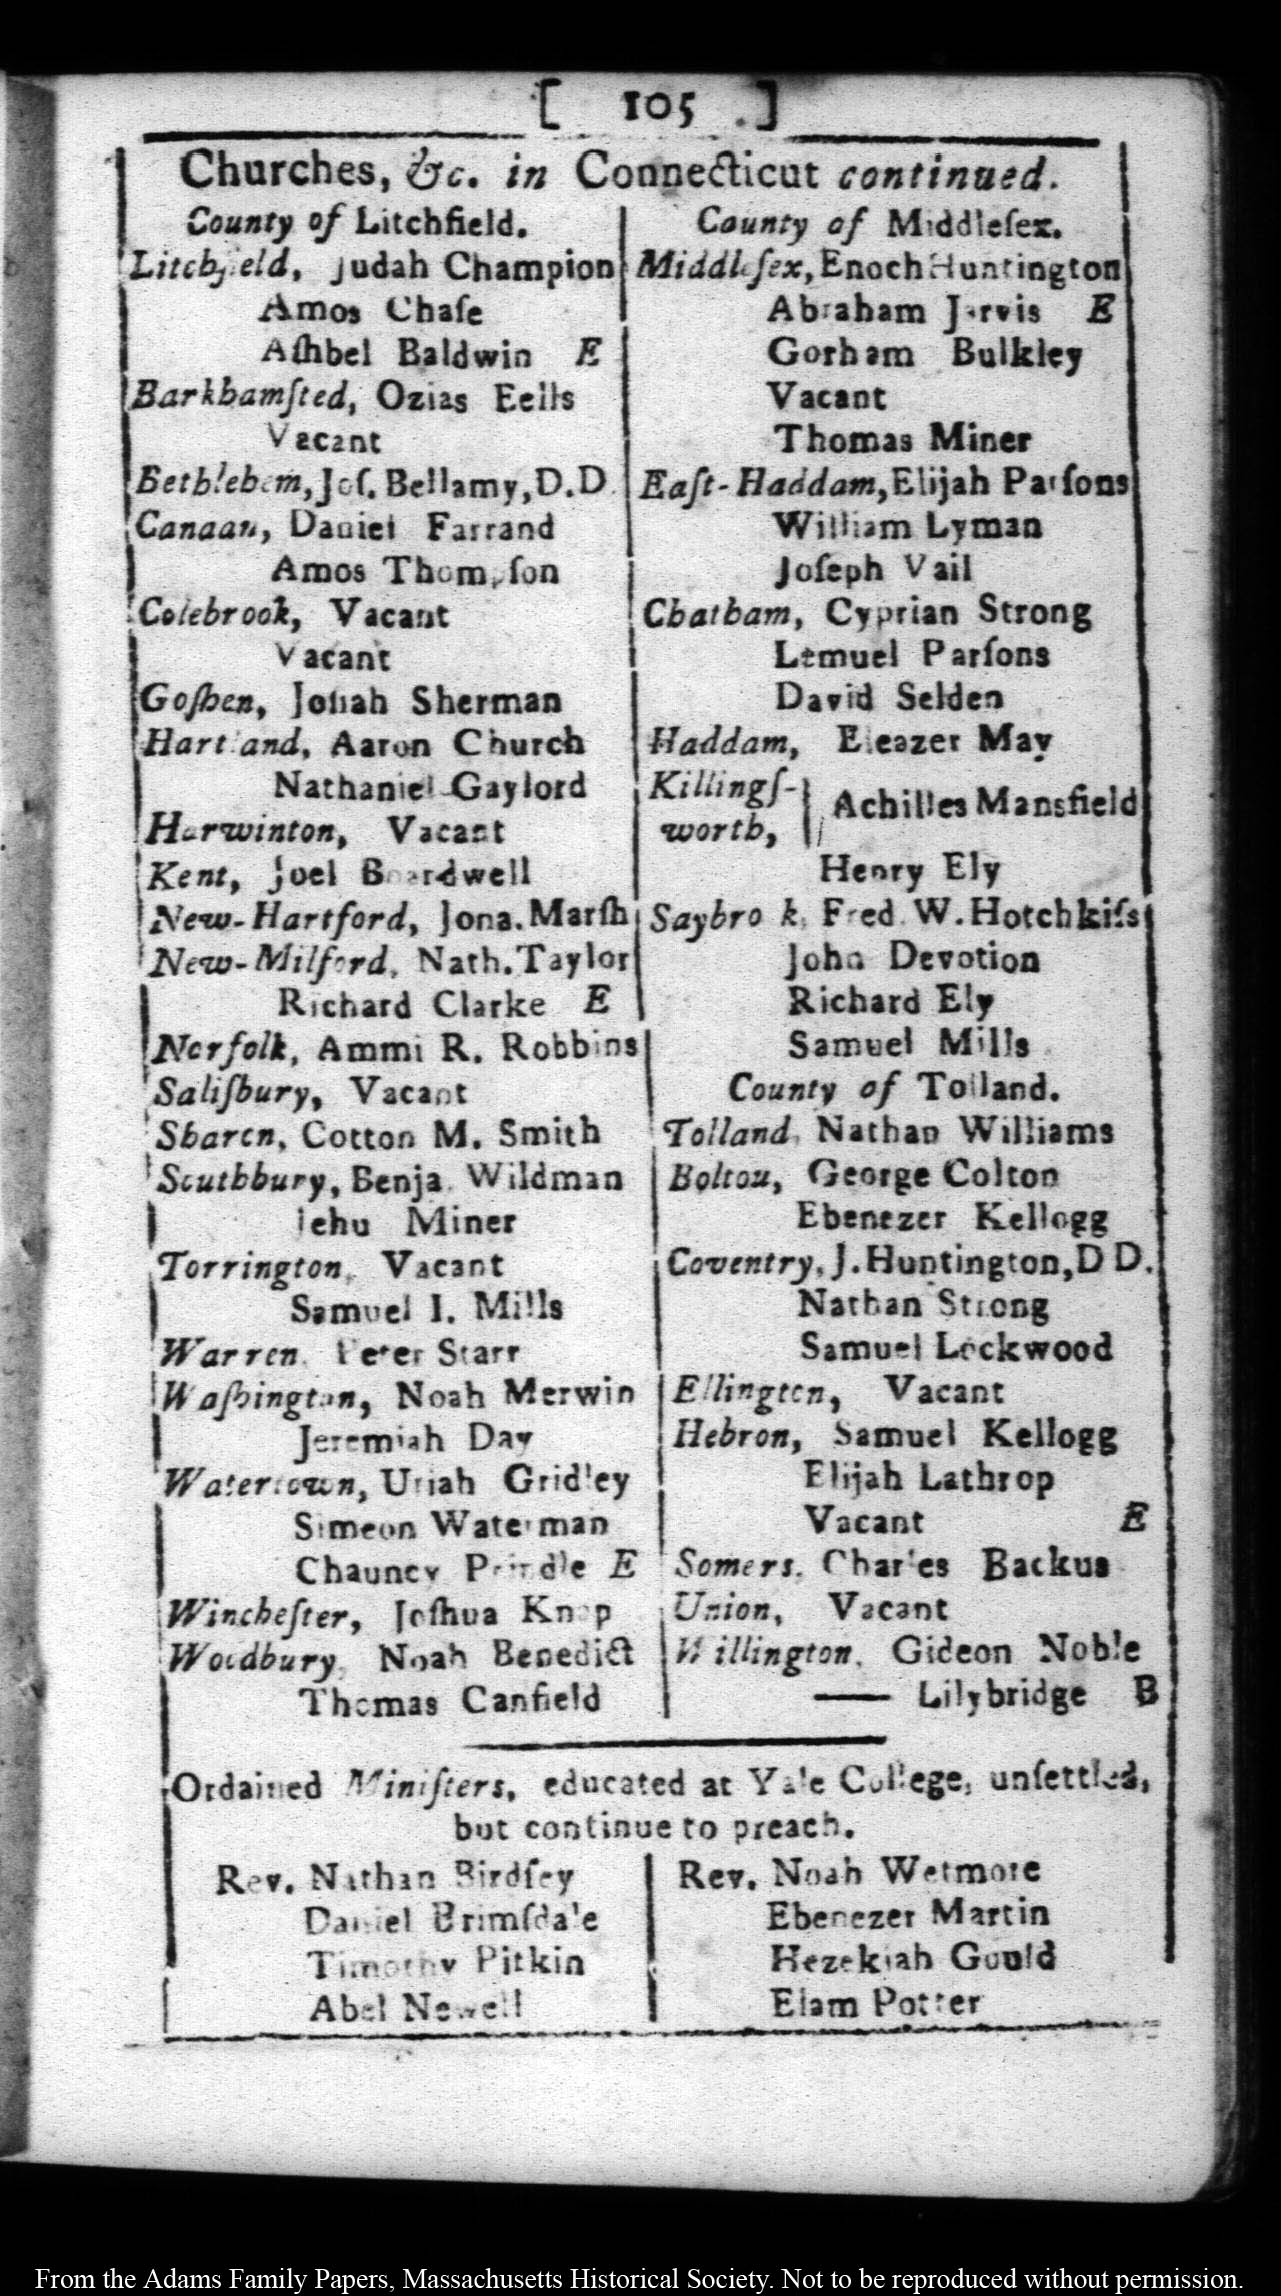 [ 105 ]
Churches, &c. in Connecticut continued.
County of Litchfield.
Litchfield, Judah Champion
Amos Chaſe
Aſhbel Baldwin E
Barkhamſted, Ozias Eells
Vacant
Bethlehem, Joſ. Bellamy, D.D.
Canaan, Daniel Farrand
Amos Thompſon
Colebrook, Vacant
Vacant
Goſhen, Joſiah Sherman
Hartland, Aaron Church
Nathaniel Gaylord
Harwinton, Vacant
Kent, Joel Boardwell
New-Hartford, Jona. Marſh
New-Milford, Nath. Taylor
Richard Clarke E
Norfolk, Ammi R. Robbins
Saliſbury, Vacant
Sharon, Cotton M. Smith
Southbury, Benja. Wildman
Jehu Miner
Torrington, Vacant
Samuel I. Mills
Warren, Peter Starr
Waſhington, Noah Merwin
Jeremiah Day
Watertown, Uriah Gridley
Simeon Waterman
Chauncy Prindle E
Wincheſter, Joſhua Knap
Woodbury, Noah Benedict
Thomas Canfield
County of Middleſex.
Middleſex, Enoch Huntington
Abraham Jarvis E
Gorham Bulkley
Vacant
Thomas Miner
Eaſt-Haddam, Elijah Parſons
William Lyman
Joſeph Vail
Chatham, Cyprian Strong
Lemuel Parſons
David Selden
Haddam, Eleazer May
Killingſ-
worth, } Achilles Mansfield
Henry Ely
Saybrook, Fred. W. Hotchkiſs
John Devotion
Richard Ely
Samuel Mills
County of Tolland.
Tolland, Nathan Williams
Boltou, George Colton
Ebenezer Kellogg
Coventry, J. Huntington, D D.
Nathan Strong
Samuel Lockwood
Ellington, Vacant
Hebron, Samuel Kellogg
Elijah Lathrop
Vacant E
Somers, Charles Backus
Union, Vacant
Willington, Gideon Noble
—— Lilybridge B
Ordained Miniſters, educated at Yale College, unſettled,
but continue to preach.
Rev. Nathan Birdſey
Daniel Brimſdale
Timothy Pitkin
Abel Newell
Rev. Noah Wetmore
Ebenezer Martin
Hezekiah Gould
Elam Potter
From the Adams Family Papers, Massachusetts Historical Society. Not to be reproduced without permission.